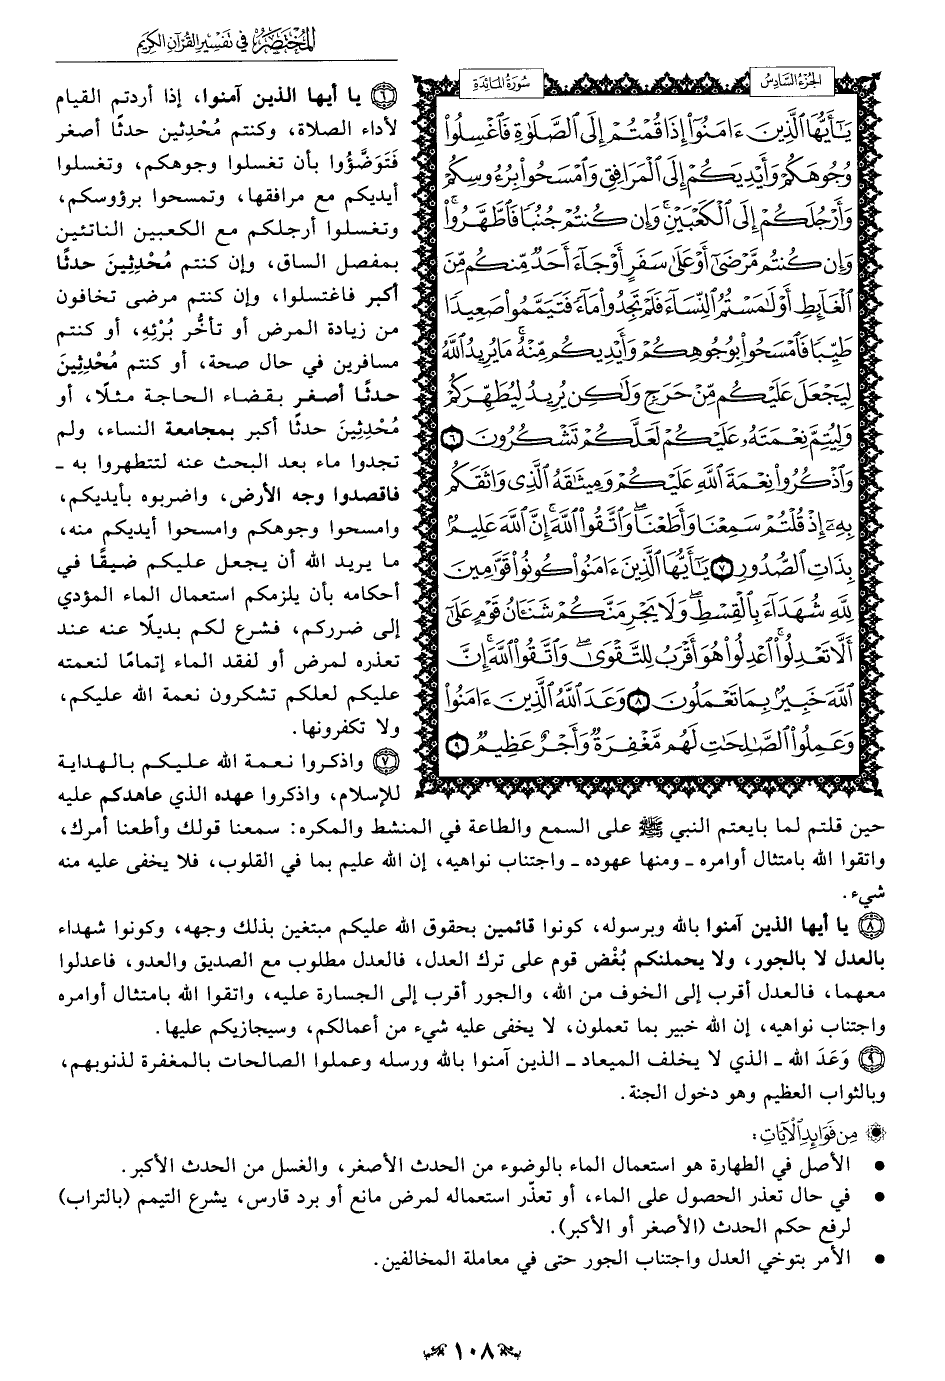 المختصر في تفسير القرآن الكريم
الجزء السادس
سورة المائدة
يَٰٓأَيُّهَا ٱلَّذِينَ ءَامَنُوٓاْ إِذَا قُمۡتُمۡ إِلَى ٱلصَّلَوٰةِ فَٱغۡسِلُواْ
وُجُوهَكُمۡ وَأَيۡدِيَكُمۡ إِلَى ٱلۡمَرَافِقِ وَٱمۡسَحُواْ بِرُءُوسِكُمۡ
وَأَرۡجُلَكُمۡ إِلَى ٱلۡكَعۡبَيۡنِۚ وَإِن كُنتُمۡ جُنُبٗا فَٱطَّهَّرُواْۚ
وَإِن كُنتُم مَّرۡضَىٰٓ أَوۡ عَلَىٰ سَفَرٍ أَوۡ جَآءَ أَحَدٞ مِّنكُم مِّنَ
ٱلۡغَآئِطِ أَوۡ لَٰمَسۡتُمُ ٱلنِّسَآءَ فَلَمۡ تَجِدُواْ مَآءٗ فَتَيَمَّمُواْ صَعِيدٗا
طَيِّبٗا فَٱمۡسَحُواْ بِوُجُوهِكُمۡ وَأَيۡدِيكُم مِّنۡهُۚ مَا يُرِيدُ ٱللَّهُ
لِيَجۡعَلَ عَلَيۡكُم مِّنۡ حَرَجٖ وَلَٰكِن يُرِيدُ لِيُطَهِّرَكُمۡ
وَلِيُتِمَّ نِعۡمَتَهُۥ عَلَيۡكُمۡ لَعَلَّكُمۡ تَشۡكُرُونَ ٦
وَٱذۡكُرُواْ نِعۡمَةَ ٱللَّهِ عَلَيۡكُمۡ وَمِيثَٰقَهُ ٱلَّذِي وَاثَقَكُم
بِهِۦٓ إِذۡ قُلۡتُمۡ سَمِعۡنَا وَأَطَعۡنَاۖ وَٱتَّقُواْ ٱللَّهَۚ إِنَّ ٱللَّهَ عَلِيمُۢ
بِذَاتِ ٱلصُّدُورِ ٧ يَٰٓأَيُّهَا ٱلَّذِينَ ءَامَنُواْ كُونُواْ قَوَّٰمِينَ
لِلَّهِ شُهَدَآءَ بِٱلۡقِسۡطِۖ وَلَا يَجۡرِمَنَّكُمۡ شَنَـَٔانُ قَوۡمٍ عَلَىٰٓ
أَلَّا تَعۡدِلُواْۚ ٱعۡدِلُواْ هُوَ أَقۡرَبُ لِلتَّقۡوَىٰۖ وَٱتَّقُواْ ٱللَّهَۚ إِنَّ
ٱللَّهَ خَبِيرُۢ بِمَا تَعۡمَلُونَ ٨ وَعَدَ ٱللَّهُ ٱلَّذِينَ ءَامَنُواْ
وَعَمِلُواْ ٱلصَّٰلِحَٰتِ لَهُم مَّغۡفِرَةٞ وَأَجۡرٌ عَظِيمٞ ٩
٦ يا أيها الذين آمنوا، إذا أردتم القيام
لأداء الصلاة، وكنتم مُحْدِثين حدثًا أصغر
فَتَوَضَّؤُوا بأن تغسلوا وجوهكم، وتغسلوا
أيديكم مع مرافقها، وتمسحوا برؤوسكم،
وتغسلوا أرجلكم مع الكعبين الناتئين
بمفصل الساق، وإن كنتم مُحْدِثِينَ حدثًا
أكبر فاغتسلوا، وإن كنتم مرضى تخافون
من زيادة المرض أو تأخُّر بُرْئِهِ، أو كنتم
مسافرين في حال صحة، أو كنتم مُحْدِثِينَ
حدثًا أصغر بقضاء الحاجة مثلًا، أو
مُحْدِثِينَ حدثًا أكبر بمجامعة النساء، ولم
تجدوا ماء بعد البحث عنه لتتطهروا به -
فاقصدوا وجه الأرض، واضربوه بأيديكم،
وامسحوا وجوهكم وامسحوا أيديكم منه،
ما يريد الله أن يجعل عليكم ضيقًا في
أحكامه بأن يلزمكم استعمال الماء المؤدي
إلى ضرركم، فشرع لكم بديلًا عنه عند
تعذره لمرض أو لفقد الماء إتمامًا لنعمته
عليكم لعلكم تشكرون نعمة الله عليكم،
ولا تكفرونها.
٧ واذكروا نعمة الله عليكم بالهداية
للإسلام، واذكروا عهده الذي عاهدكم عليه
حين قلتم لما بايعتم النبي ﷺ على السمع والطاعة في المنشط والمكره: سمعنا قولك وأطعنا أمرك،
واتقوا الله بامتثال أوامره - ومنها عهوده - واجتناب نواهيه، إن الله عليم بما في القلوب، فلا يخفى عليه منه
شيء.
٨ يا أيها الذين آمنوا بالله وبرسوله، كونوا قائمين بحقوق الله عليكم مبتغين بذلك وجهه، وكونوا شهداء
بالعدل لا بالجور، ولا يحملنكم بُغْض قوم على ترك العدل، فالعدل مطلوب مع الصديق والعدو، فاعدلوا
معهما، فالعدل أقرب إلى الخوف من الله، والجور أقرب إلى الجسارة عليه، واتقوا الله بامتثال أوامره
واجتناب نواهيه، إن الله خبير بما تعملون، لا يخفى عليه شيء من أعمالكم، وسيجازيكم عليها.
٩ وَعَدَ الله - الذي لا يخلف الميعاد - الذين آمنوا بالله ورسله وعملوا الصالحات بالمغفرة لذنوبهم،
وبالثواب العظيم وهو دخول الجنة.
من فوائد الآيات:
• الأصل في الطهارة هو استعمال الماء بالوضوء من الحدث الأصغر، والغسل من الحدث الأكبر.
• في حال تعذر الحصول على الماء، أو تعذّر استعماله لمرض مانع أو برد قارس، يشرع التيمم (بالتراب)
لرفع حكم الحدث (الأصغر أو الأكبر).
• الأمر بتوخي العدل واجتناب الجور حتى في معاملة المخالفين.
١٠٨